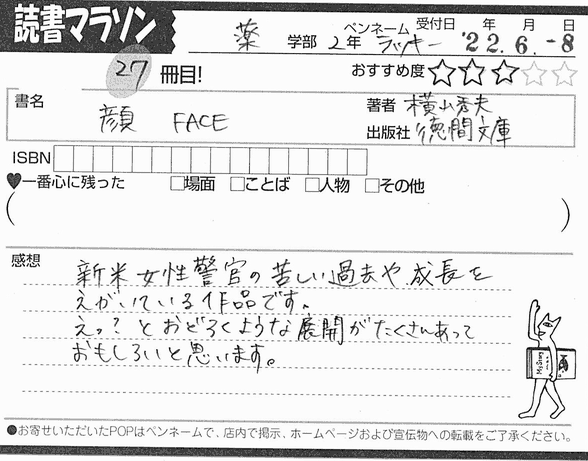 読書マラソン
薬 学部 2年 ペンネーム ラッキー 受付日 '22年 6月 -8日
27 冊目! おすすめ度 ★★★☆☆
書名 顔 FACE
著者 横山秀夫
出版社 徳間文庫
ISBN
♥一番心に残った □場面 □ことば □人物 □その他
( )
感想
新米女性警官の苦しい過去や成長を
えがいている作品です。
えっ?とおどろくような展開がたくさんあって
おもしろいと思います。
●お寄せいただいたPOPはペンネームで、店内で掲示、ホームページおよび宣伝物への転載をご了承ください。